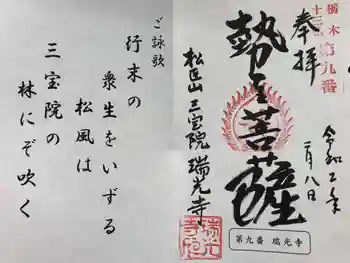 栃木
十三佛第九番
奉拝
令和二年
二月八日
勢至菩薩
松臣山 三宝院 瑞光寺
瑞光寺印
第九番 瑞光寺
ご詠歌
行末の
衆生をいずる
松風は
三宝院の
林にぞ吹く